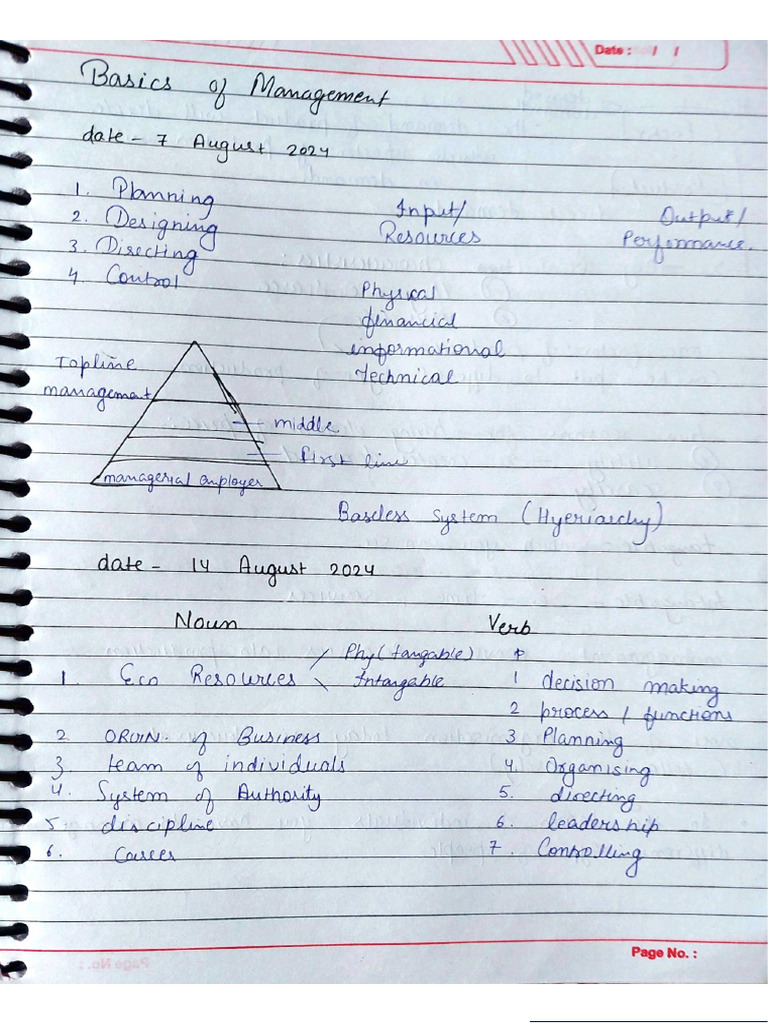 Date : / /
Basics of Management
date - 7 August 2024
1. Planning
2. Designing
3. Directing
4. Control
Input/
Resources
Output/
Performance.
Physical
financial
informational
Technical
Topline
management
middle
First line
managerial employer
Baseless System (Hyeriarchy)
date - 14 August 2024
Noun
Verb
1. Eco Resources / Phy (tangable)
\ Intangable
2 of Business
3. team of individuals
4. System of Authority
5 discipline
6. Career
1 decision making
2 process / functions
3 Planning
4. Organising
5. directing
6. leadership
7. Controlling
Page No. :